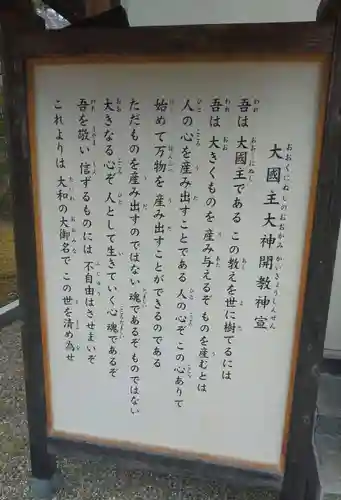 大國主大神開教神宣
吾は 大國主である この教えを世に樹てるには
吾は 大きくものを 産み与えるぞ ものを産むとは
人の心を産み出すことである 人の心ぞ この心ありて
始めて万物を 産み出すことができるのである
ただものを産み出すのではない 魂であるぞ ものではない
大きなる心ぞ 人として生きていく心魂であるぞ
吾を敬い 信ずるものには 不自由はさせまいぞ
これよりは 大和の大御名で この世を清め為せ